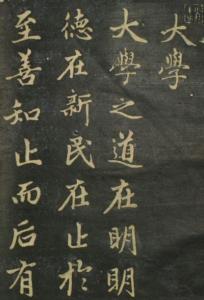 大学
大学之道在明明
德在新民在止於
至善知止而后有